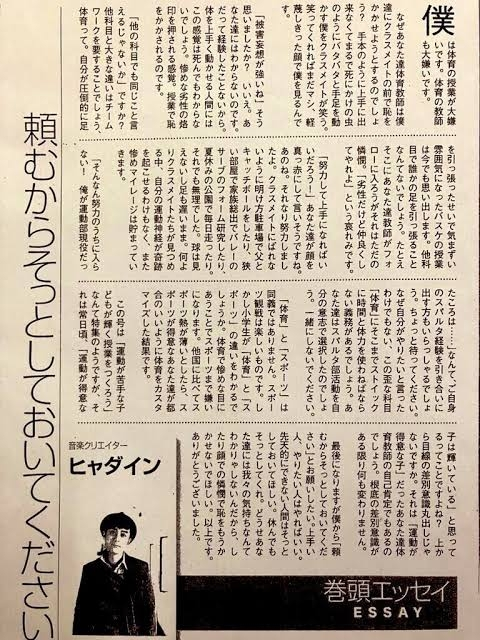 僕
は体育の授業が大嫌
いです。体育の教師
も大嫌いです。
なぜあなた達体育教師は僕
達にクラスメイトの前で恥を
かかせようとするのでしょ
う？ 手本のように上手に出
来なくてまるで死にかけの虫
のようなバタバタと手足を動
かす僕をクラスメイトが笑う。
笑ってくれればまだマシ、軽
蔑しきった顔で僕を見るんで
す。
「被害妄想が強いね」そう
思いましたか？ いいえ。あ
なた達にはわからないのです。
だって経験したことないから。
体を上手く動かせる人間には
この感覚は死んでもわからな
いでしょう。惨めな劣性の烙
印を押される感覚。授業で恥
をかかされるのです。
「他の科目でも同じこと言
えるじゃないか」ですか？
他科目と大きな違いはチーム
ワークを要することでしょう、
体育って。自分が圧倒的に足
を引っ張ったせいで気まずい
雰囲気になったバスケの授業
は今でも思い出します。他科
目で誰かの足を引っ張ること
なんてないでしょう。たとえ
そこにあなた達教師がフォ
ローに入ろうがそれはただの
憐憫。「劣性だけど仲良くし
てやれよ」という哀れみです。
「努力して上手になればい
いだろう！」あなた達が顔を
真っ赤にして言いそうですね。
あのね。それなり努力しまし
たよ。クラスメイトにばれな
いように明け方駐車場で父と
キャッチボールをしたり、狭
い部屋で家族総出でバレーの
サーブのフォーム研究したり、
夏休みの公園で毎日走ったり。
それでも無理でした。球は見
えないし足も遅いまま。何よ
りクラスメイトたちが見つめ
る中、自分の運動神経が奇跡
を起こせるわけもなく、また
惨めマイレージは貯まってい
きます。
「そんなん努力のうちに入ら
ない！ 俺が運動部現役だっ
たころは……」なんてご自身
のスパルタ経験を引き合いに
出す方もいらっしゃるでしょ
う。ちょっと待ってください。
なぜ自分がやりたいと言った
わけでもない、この歪な科目
「体育」にそこまでストイック
に時間と体力を使わねばなら
ない義務があるでしょう。あ
なた達はスパルタ部活動を自
分の意志で選択したのでしょ
う。一緒にしないでください。
「体育」と「スポーツ」は
同義ではありません。スポー
ツ観戦は楽しいものです。し
かし小学生が「体育」と「ス
ポーツ」の違いをわかるで
しょうか。体育で惨めな目に
あうことでスポーツまで嫌い
になります。他国に比べてス
ポーツ熱が薄いとしたら、ス
ポーツが得意なあなた達が都
合のいいように体育をカスタ
マイズした結果です。
この号は「運動が苦手な子
どもが輝く授業をつくろう」
なんて特集のようですが、そ
れは常日頃、「運動が得意な
子は輝いている」と思って
るってことですよね？ 上か
ら目線の差別意識丸出しじゃ
ないですか。それは「運動が
得意な子」だったあなた達体
育教師の自己肯定でもあるの
でしょう。根底の差別意識が
ある限り何も変わりません。
最後になりますが僕から「頼
むからそっとしておいてくだ
さい」とお願いしたい。上手い
人、やりたい人はやればいい。
先天的にできない人間はそっと
しておいてほしい。休んでも
そっとしてくれ。どうせあな
た達には我々の気持ちなんて
わかりゃしないんだから、し
たり顔での憐憫で恥をもうか
かせないでほしい。以上です。
ありがとうございました。
頼むからそっとしておいてください
音楽クリエイター
ヒャダイン
巻頭エッセイ
ESSAY